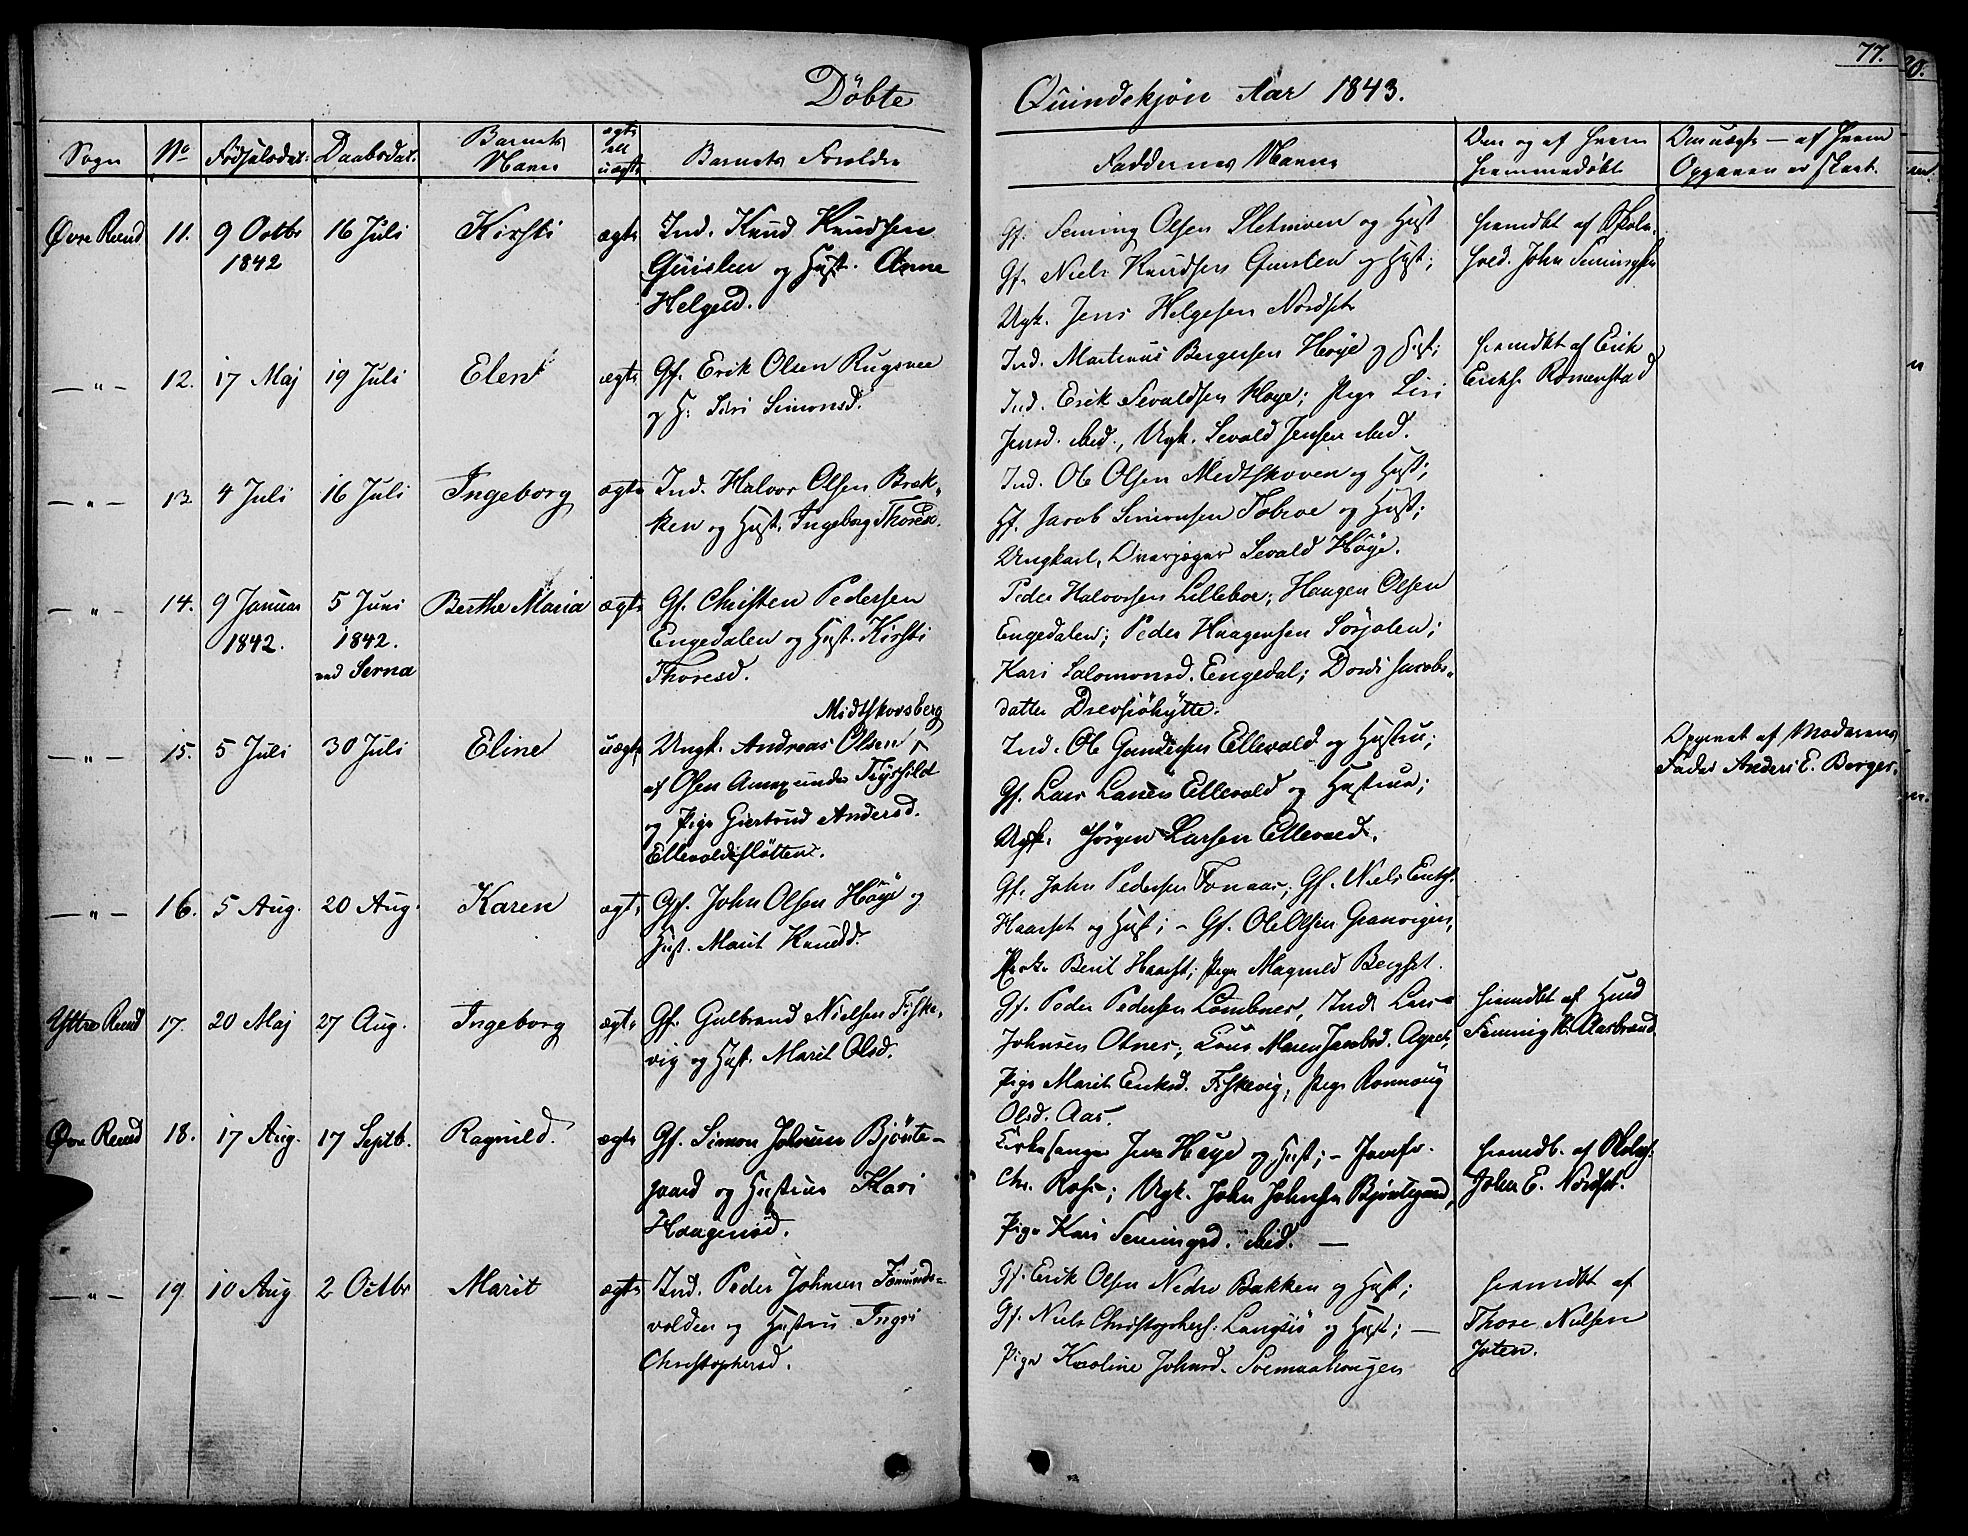 77.
Döbte Qvindekjøn Aar 1843.
Sogn No Fødselsdat. Daabsdat. Barnets Navn ægte ell uægte Barnets Forældre Faddernes Navne Om og af hvem hjemmedøbt Om uægte — af hvem Opgaven er skeet.
Øvre Rend 11. 9 Octbr 1842 16 Juli Kirsti ægte
Ind. Knud Knudsen
Qvislen og Hust. Anne
Helgesd.
Gf. Seming Olsen Sletmoen og Hust
Gf. Niels Knudsen Qvislen og Hust;
Ugk. Jens Helgesen Nordset
hjemdbt af Skole-
hold. John Semingsen
— " — 12. 17 Maj 19 Juli Elen ægte
Gf. Erik Olsen Rugsvee
og H: Siri Simonsd.
Ind. Martinus Bergersen Høye og Hust;
Ind. Erik Sevaldsen Høye; Pige Siri
Jensd. ibid., Ugk. Sevald Jensen ibid.
hjemdbt af Erik
Eriks. Romenstad
— " — 13. 4 Juli 16 Juli Ingeborg ægte
Ind. Halvor Olsen Bræk-
ken og Hust. Ingeborg Thoresd.
Ind. Ole Olsen Medtskoven og Hust;
Gf. Jacob Simonsen og Hust;
Ungkarl, Sevald Høye.
— " — 14. 9 Januar 1842. 5 Juni 1842. ved Serna Berthe Maria ægte
Gf. Christen Pedersen
Engedalen og Hust. Kirsti
Thoresd.
Peder Halvorsen Lilleboe; Haagen Olsen
Engedalen; Peder Haagensen Sörjolen;
Kari Salomonsd. Engedal; Dordi Jacobs-
datter Drevsiöhytte.
— " — 15. 5 Juli 30 Juli Eline uægte
Midtskovsberg
Ungk. Andreas Olsen
af Olsen Trysild
og Pige Giertrud Andersd.
Ellevoldsfløtten.
Ind. Ole Gundersen Ellevold og Hustru;
Gf. Lars Larsen Ellevold og Hustrue;
Ugk. Jörgen Larsen Ellevold.
Opgivet af Moderens
Fader Anders E. Berger.
— " — 16. 5 Aug. 20 Aug. Karen ægte
Gf. John Olsen Höye og
Hust. Marit Knudsd.
Gf. John Pedersen Fonaas; Gf. Niels Eriks.
Haarset og Hust; — Gf. Ole Olsen Granvigen,
Berit Haarset; Pige Magnild Bergset.
Yttre Rend 17. 20 Maj 27 Aug. Ingeborg ægte
Gf. Gulbrand Nielsen Fiske-
vig og Hust. Marit Olsd.
Gf. Peder Pedersen Lombnes, Ind. Lars
Johnsen Otnes; Maren Jacobsd.
Pige Marit Eriksd. Fiskevig; Pige Ronnoug
Olsd. Aas.
hjemdbt af Husmd
Seming Aasbrænd
Øvre Rend 18. 17 Aug. 17 Septb. Ragnild. ægte
Gf. Simon Johnsen Bjönte-
gaard og Hustrue Kari
Haagensd.
Kirkesanger Jens Høye og Hust; — Jomfr.
Chr. Ross; Ugk. John Johnsen Bjöntegaard,
Pige Kari Semingsd. ibid. —
hjemdb. af Skoleh.
John E. Nordset.
— " — 19. 10 Aug 2 Octbr Marit ægte
Ind. Peder Johnsen Fæmunds-
volden og Hustru Ingri
Christophersd.
Gf. Erik Olsen Nedre Bakken og Hust;
Gf. Niels Christophers. Langsiö og Hust; —
Pige Karoline Johnsd. Soemaahougen
hjemdbt af
Thore Nielsen
Joten.